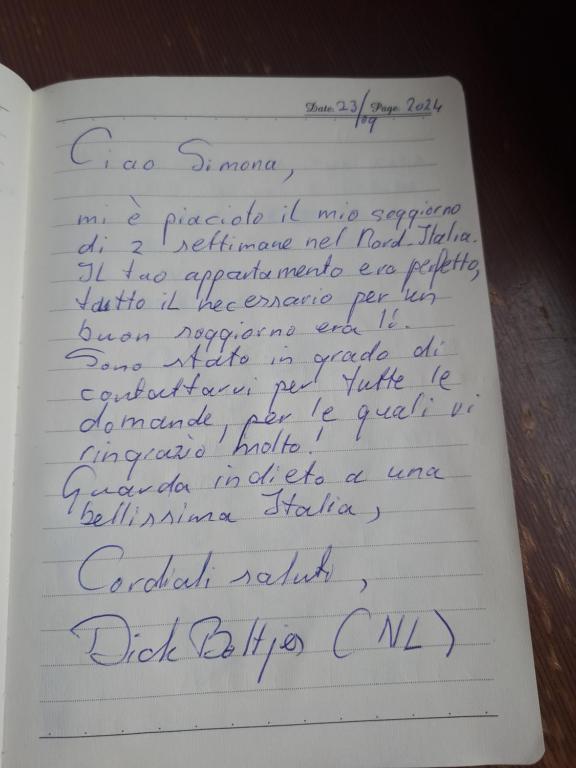 Date: 23/09 Page: 2024
Ciao Simona,
mi è piaciuto il mio soggiorno
di 2 settimane nel Nord Italia.
Il tuo appartamento era perfetto,
tutto il necessario per un
buon soggiorno era lì.
Sono stato in grado di
contattarvi per tutte le
domande, per le quali vi
ringrazio molto!
Guarda indieto a una
bellissima Italia,
Cordiali saluti,
Dick Boltjes (NL)